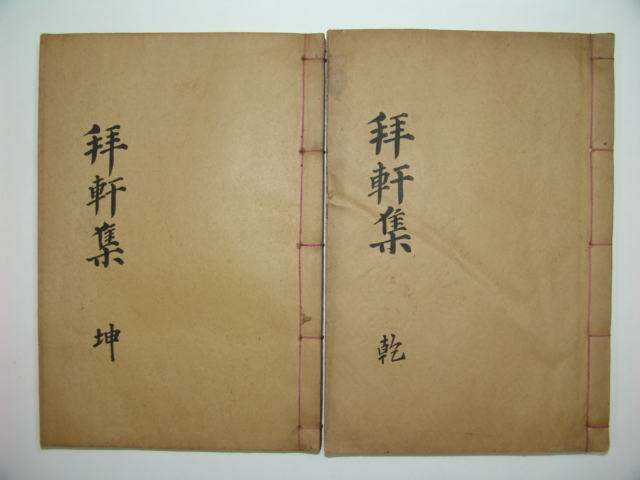 拜軒集
乾
拜軒集
坤